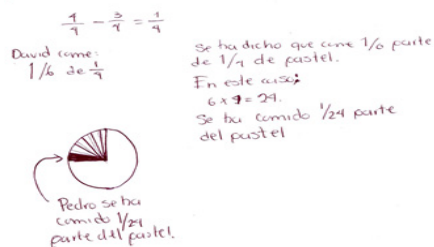 4/4 - 3/4 = 1/4
David come:
1/6 de 1/4
Se ha dicho que come 1/6 parte
de 1/4 de pastel.
En este caso;
6 x 4 = 24.
Se ha comido 1/24 parte
del pastel
Pedro se ha
comido 1/24
parte del pastel.